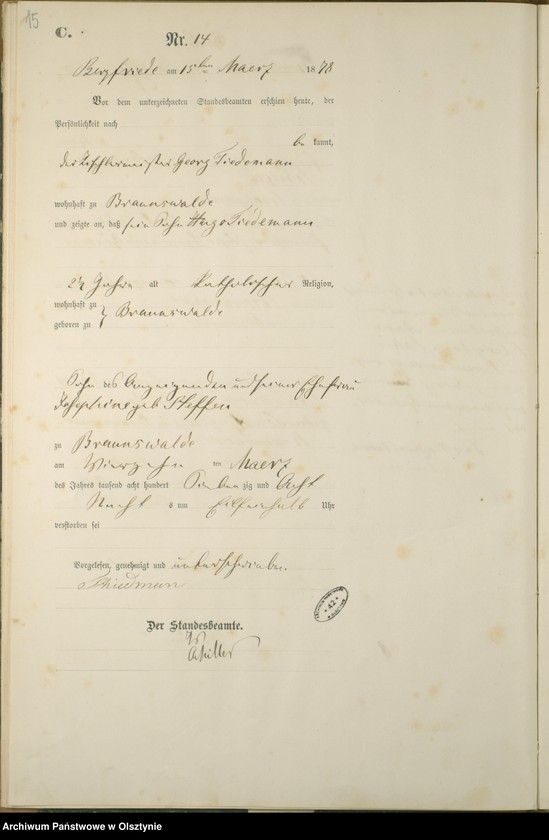 15
C.
Nr. 14
Bergfriede am 15ten Maerz 1878
Vor dem unterzeichneten Standesbeamten erschien heute, der
Persönlichkeit nach
be kannt,
der Tischlermeister Georg Tiedemann
wohnhaft zu Braunswalde
und zeigte an, daß sein Sohn Hugo Tiedemann
24 Jahre alt katholischer Religion,
wohnhaft zu
Braunswalde
geboren zu
Sohn des Anzeigenden und seiner Ehefrau
Josephine geb Steffen
zu Braunswalde
am Vierzehn ten Maerz
des Jahres tausend acht hundert Sieben zig und Acht
Nachts um Eilfeinhalb Uhr
verstorben sei
Vorgelesen, genehmigt und unterschrieben.
Thiedmann
42
Der Standesbeamte.
Archiwum Państwowe w Olsztynie